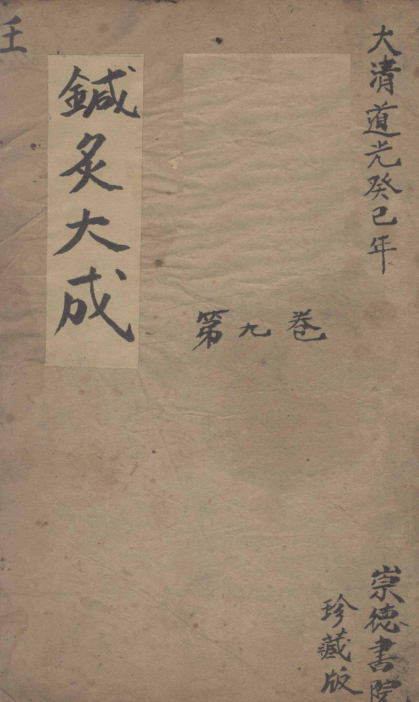 大清道光癸巳年
崇德書院
珍藏版
第九卷
鍼灸大成
王